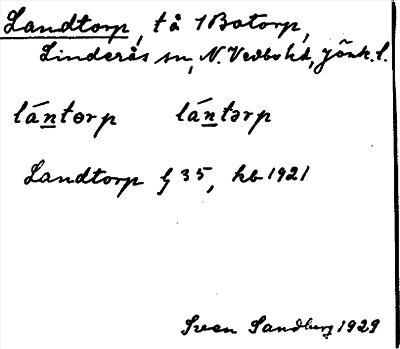 Landtorp, t å 1 Botorp,
Linderås sn, N. Vedbo hd, Jönk. l.
lántɵrp lántərp
Landtorp G 35, hb 1921
Sven Sandberg 1929